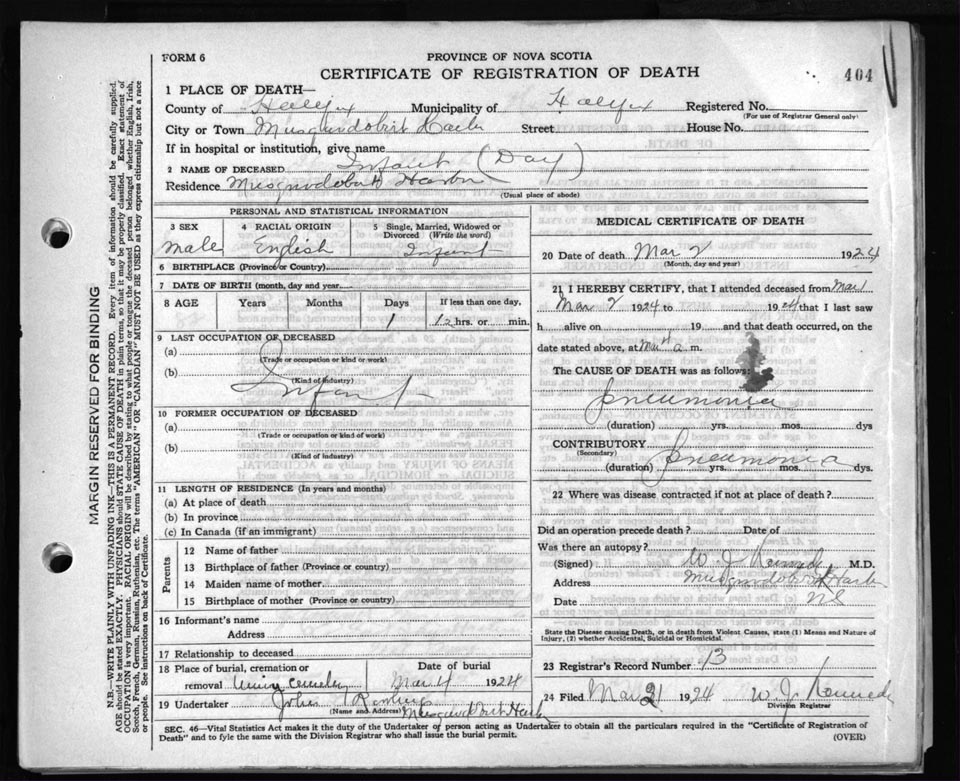 FORM 6
PROVINCE OF NOVA SCOTIA
CERTIFICATE OF REGISTRATION OF DEATH
404
1 PLACE OF DEATH—
County of Halifax Municipality of Halifax Registered No.
(For use of Registrar General only)
City or Town Musquodoboit Harbr Street House No.
If in hospital or institution, give name
2 NAME OF DECEASED Infant (Day)
Residence Musquodoboit Harbr
(Usual place of abode)
PERSONAL AND STATISTICAL INFORMATION
3 SEX 4 RACIAL ORIGIN 5 Single, Married, Widowed or Divorced (Write the word)
male English Infant
6 BIRTHPLACE (Province or Country)
7 DATE OF BIRTH (month, day and year)
8 AGE Years Months Days If less than one day,
1 12 hrs. or min.
9 LAST OCCUPATION OF DECEASED
(a)
(Trade or occupation or kind or work)
(b)
(Kind of industry)
Infant
10 FORMER OCCUPATION OF DECEASED
(a)
(Trade or occupation or kind of work)
(b)
(Kind of industry)
11 LENGTH OF RESIDENCE (In years and months)
(a) At place of death
(b) In province
(c) In Canada (if an immigrant)
Parents
12 Name of father
13 Birthplace of father (Province or country)
14 Maiden name of mother
15 Birthplace of mother (Province or country)
16 Informant's name
Address
17 Relationship to deceased
18 Place of burial, cremation or Date of burial
removal Union Cemetery Mar 4 1924
19 Undertaker John
(Name and Address) Musquodoboit Harb
MEDICAL CERTIFICATE OF DEATH
20 Date of death Mar 2 1924
(Month, day and year)
21 I HEREBY CERTIFY, that I attended deceased from Mar 1
Mar 2 1924 to 1924 that I last saw
h alive on , 19 and that death occurred, on
date stated above, at a m.
The CAUSE OF DEATH was as follows:
Pneumonia
(duration) yrs. mos. dys
CONTRIBUTORY
(Secondary)
Pneumonia
(duration) yrs. mos. dys.
22 Where was disease contracted if not at place of death?
Did an operation precede death? Date of
Was there an autopsy?
(Signed) W J Kennedy M.D.
Address Musquodoboit Harb
Date NS
State the Disease causing Death, or in death from Violent Causes, state (1) Means and Nature of
Injury, (2) whether Accidental, Suicidal or Homicidal.
23 Registrar's Record Number 13
24 Filed Mar 31 1924 W J Kennedy
Division Registrar
SEC. 46—Vital Statistics Act makes it the duty of the Undertaker of person acting as Undertaker to obtain all the particulars required in the "Certificate of Registration of
Death" and to fyle the same with the Division Registrar who shall issue the burial permit.
(OVER)
MARGIN RESERVED FOR BINDING
N.B—WRITE PLAINLY WITH UNFADING INK—THIS IS A PERMANENT RECORD. Every item of information should be carefully supplied.
AGE should be stated EXACTLY. PHYSICIANS should STATE CAUSE OF DEATH in plain terms, so that it may be properly classified. Exact statement of
OCCUPATION is very important. RACIAL ORIGIN will be described by stating to what people or tongue the deceased person belonged whether English, Irish,
Scotch, French, German, Russian, Ruthenian, etc. The terms "AMERICAN" OR "CANADIAN" MUST NOT BE USED as they express citizenship but not a race
or people. See instructions on back of Certificate.